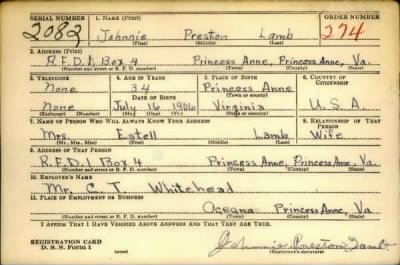 SERIAL NUMBER 1. NAME (Print) ORDER NUMBER
2082 Johnnie Preston Lamb 274
(First) (Middle) (Last)
2. ADDRESS (Print)
R.F.D.1 Box 4 Princess Anne, Princess Anne, Va.
(Number and street or R. F. D. number) (Town) (County) (State)
3. TELEPHONE 4. AGE IN YEARS 5. PLACE OF BIRTH 6. COUNTRY OF CITIZENSHIP
None 34 Princess Anne
DATE OF BIRTH (Town or county)
None July 16 1906 Virginia U.S.A.
(Exchange) (Number) (Mo.) (Day) (Yr.) (State or country)
7. NAME OF PERSON WHO WILL ALWAYS KNOW YOUR ADDRESS 8. RELATIONSHIP OF THAT PERSON
Mrs. Estell Lamb Wife
(Mr., Mrs., Miss) (First) (Middle) (Last)
9. ADDRESS OF THAT PERSON
R.F.D.1 Box 4 Princess Anne, Princess Anne, Va.
(Number and street or R. F. D. number) (Town) (County) (State)
10. EMPLOYER'S NAME
Mr. C. T. Whitehead
11. PLACE OF EMPLOYMENT OR BUSINESS
Oceana Princess Anne, Va
(Number and street or R. F. D. number) (Town) (County) (State)
I AFFIRM THAT I HAVE VERIFIED ABOVE ANSWERS AND THAT THEY ARE TRUE.
REGISTRATION CARD
D. S. S. Form 1 Johnnie Preston Lamb
(Registrant's signature)